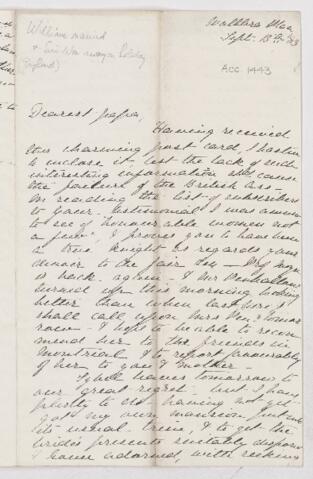 William married
+ Sir Wm away on holiday
(England)
Sept. 13th
ACC 1443
Dearest Papa,
Having received
this charming post card, I hasten
to enclose it, lest the lack of such
interesting information cause
the failure of the British Ass-
On reading the list of subscribers
to your testimonial I was amused
to see of honourable women not
a few. I
a true knight as regards your
manner to the fair sex -
is back again. & Mr Penhallow
turned up this morning looking
better than when last
shall call upon Mrs Pen. tomor-
row - & hope to be able to recom
mend her to the friends in
Montreal & to report favourably
of her to you & Mother -
leaves tomorrow to
our great regret - but I have
plenty to do having not yet
got my own mansion into
its usual trim, & to get the
bride's presents suitably disposed
& house adorned, with reekin